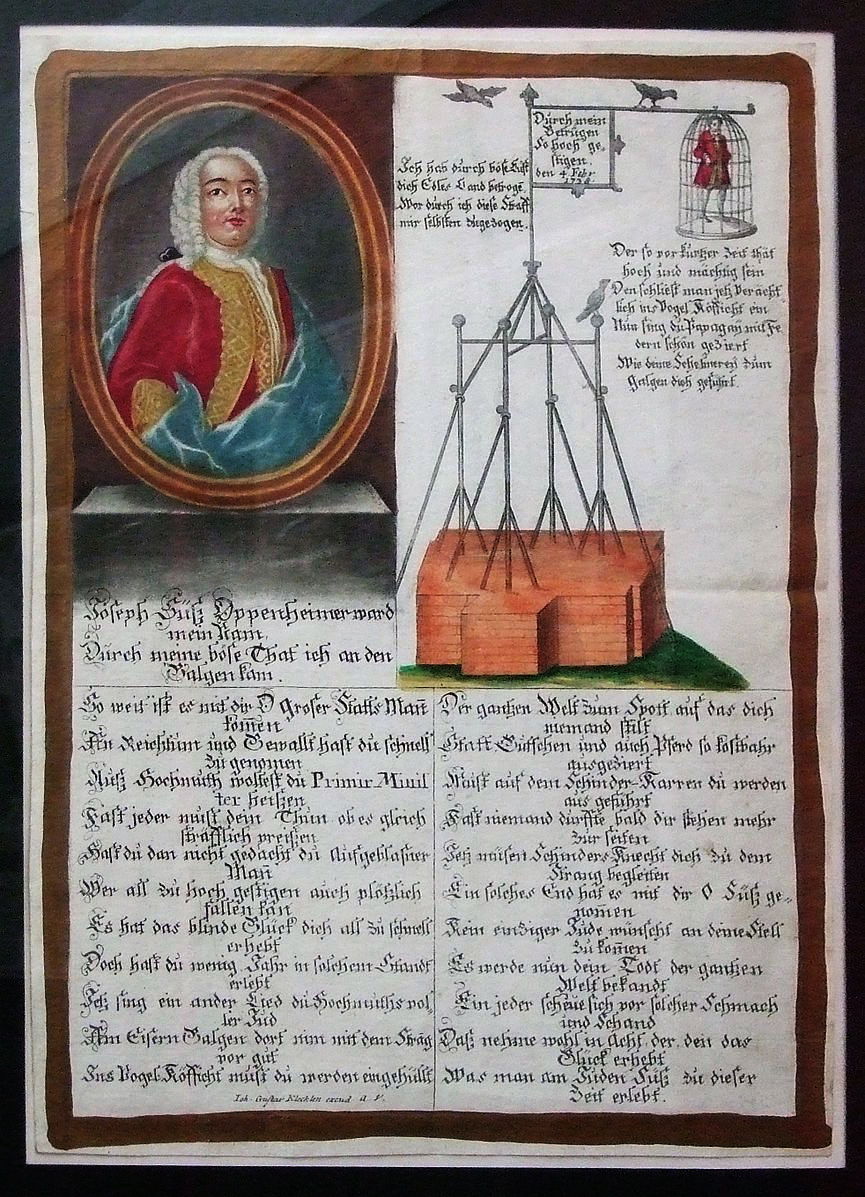 Durch mein
Betrügen
So hoch ge-
stigen.
den 4 Febr
1738
Ich hab durch böse List
dich Edles Land betrogē.
Wor durch ich diese Straff
mir selbsten zugezogen.
Der so vor kurtzer Zeit thät
hoch und mächtig sein
Den schliest man jetz verächt
lich ins Vogel Köfficht ein
Nun sing du Papagay mit Fe
dern schön geziert
Wie deine Schelmerey zum
Galgen dich geführt.
Joseph Süß Oppenheimer ward
mein Nam,
Durch meine böse That ich an den
Galgen kam.
So weit ist es mit dir O groser Statts Mañ
komen
An Reichtum und Gewallt hast du schnell
zu genomen
Auß Hochmuth woltest du Primir Minis
ter heisen
Fast jeder must dein Thun ob es gleich
sträfflich preisen
Hast du dan nicht gedacht du Aufgeblasner
Mañ
Wer all zu hoch gestigen auch plötzlich
fallen kan
Es hat das blinde Glück dich all zu schnell
erhebt
Doch hast du wenig Jahr in solchem Standt
erlebt
Jetz sing ein ander Lied du Hochmuths vol-
ler Jud
Am Eisern Galgen dort nim mit dem Strāg
vor gut
Ins Vogel Köfficht must du werden eingehüllt
Der gantzen Welt zum Spott auf das dich
niemand stilt
Statt Gutschen und auch Pferd so kostbahr
ausgeziert
Must auf dem Schinder-Karren du werden
aus geführt
Fast niemand dürffte bald dir stehen mehr
zur seiten
Jetz müsen Schinders Knecht dich zu dem
Strang begleiten
Ein solches End hat es mit dir O Süß ge-
nomen
Kein einziger Jude wünscht an deine Stell
zu komen
Es werde nun dein Todt der gantzen
Welt bekandt
Ein jeder scheue sich vor solcher Schmach
und Schand
Das nehme wohl in Acht der, den das
Glück erhebt
Was man am Juden Süß zu dieser
Zeit erlebt.
Ioh. Cristas Klecklen excud A. V.